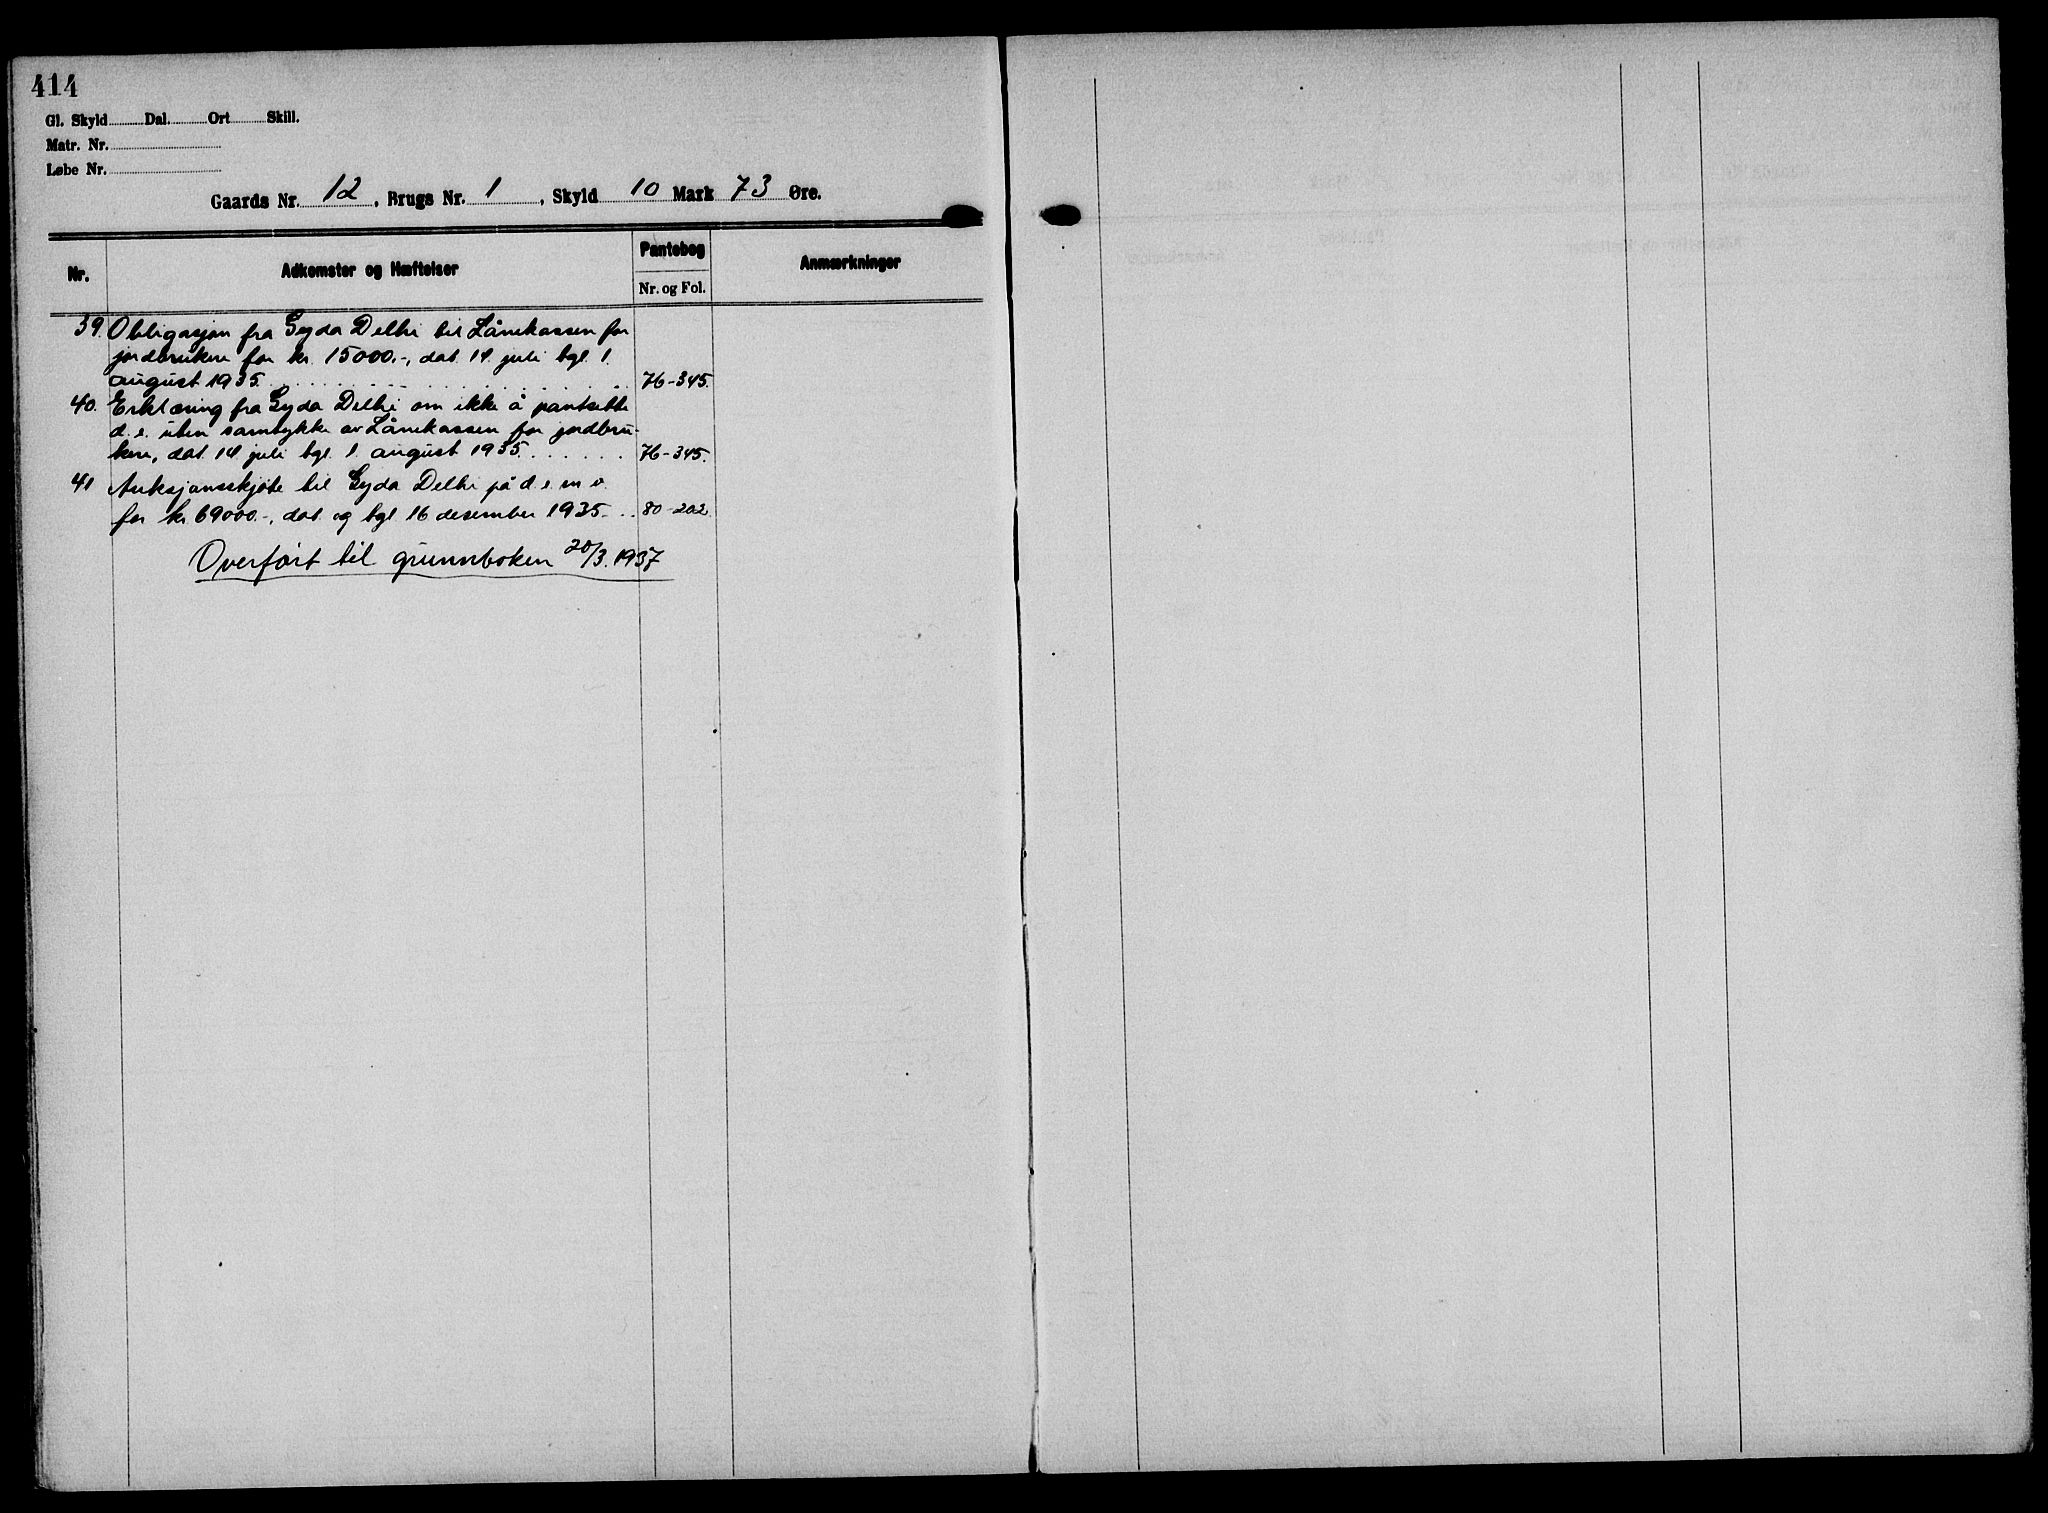 414
Gl. Skyld Dal. Ort Skill.
Matr. Nr.
Løbe Nr.
Gaards Nr. 12, Brugs Nr. 1, Skyld 10 Mark 73 Øre.
Nr. Adkomster og Hæftelser Pantebog Anmærkninger
Nr. og Fol.
39. Obligasjon fra Gyda Delhi til Lånekassen for
jordbrukere for kr. 15000.-, dat. 14. juli tgl. 1.
august 1935. 76-345.
40. Erklæring fra Gyda Delhi om ikke å pantsette
d. e. uten samtykke av Lånekassen for jordbru-
kere, dat. 14 juli tgl. 1. august 1935. 76-345.
41 Auksjonsskjøte til Gyda Delhi på d. e. m v.
for kr 69000.-, dat. og tgl 16 desember 1935. 80-202.
Overført til grunnboken 20/3. 1937